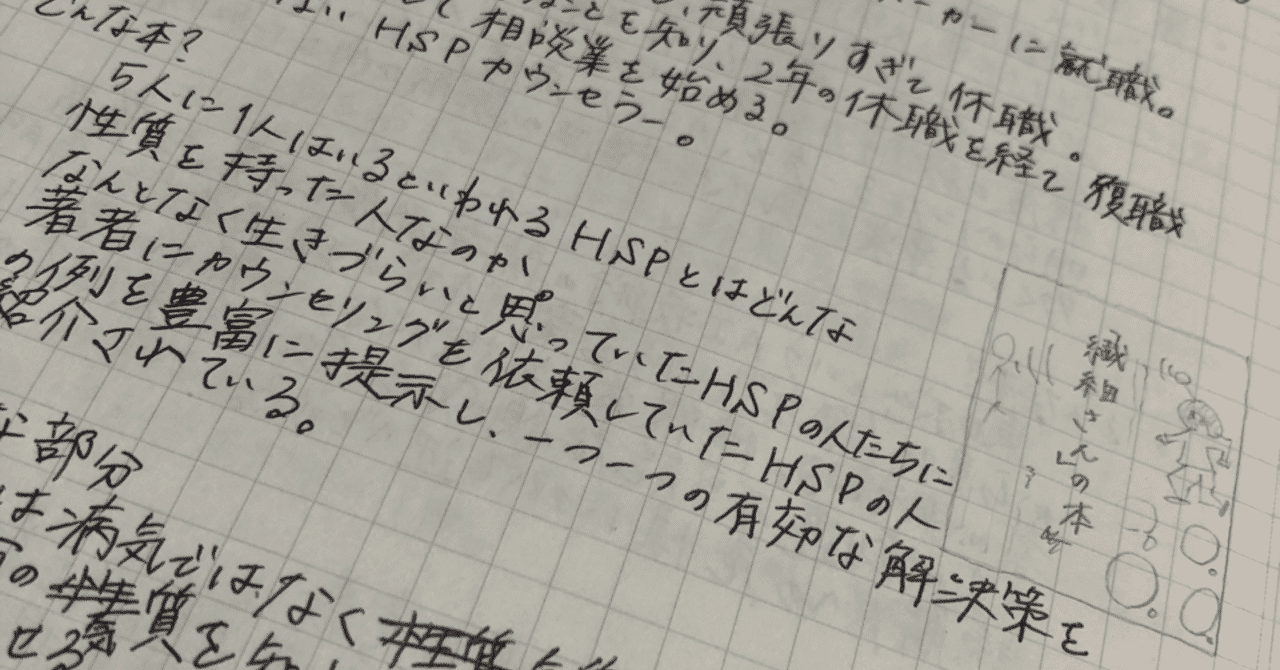 カーに就職。
頑張りすぎて休職。
ことを知り、2年の休職を経て復職
て相談業を始める。
ない HSPカウンセラー。
どんな本?
5人に1人はいるといわれるHSPとはどんな
性質を持った人なのか
なんとなく生きづらいと思っていたHSPの人たちに
著者にカウンセリングを依頼していたHSPの人
の例を豊富に提示し、一つ一つの有効な解決策を
紹介されている。
な部分
は病気ではなく性質
の性質を知
せる
繊細さん」の本